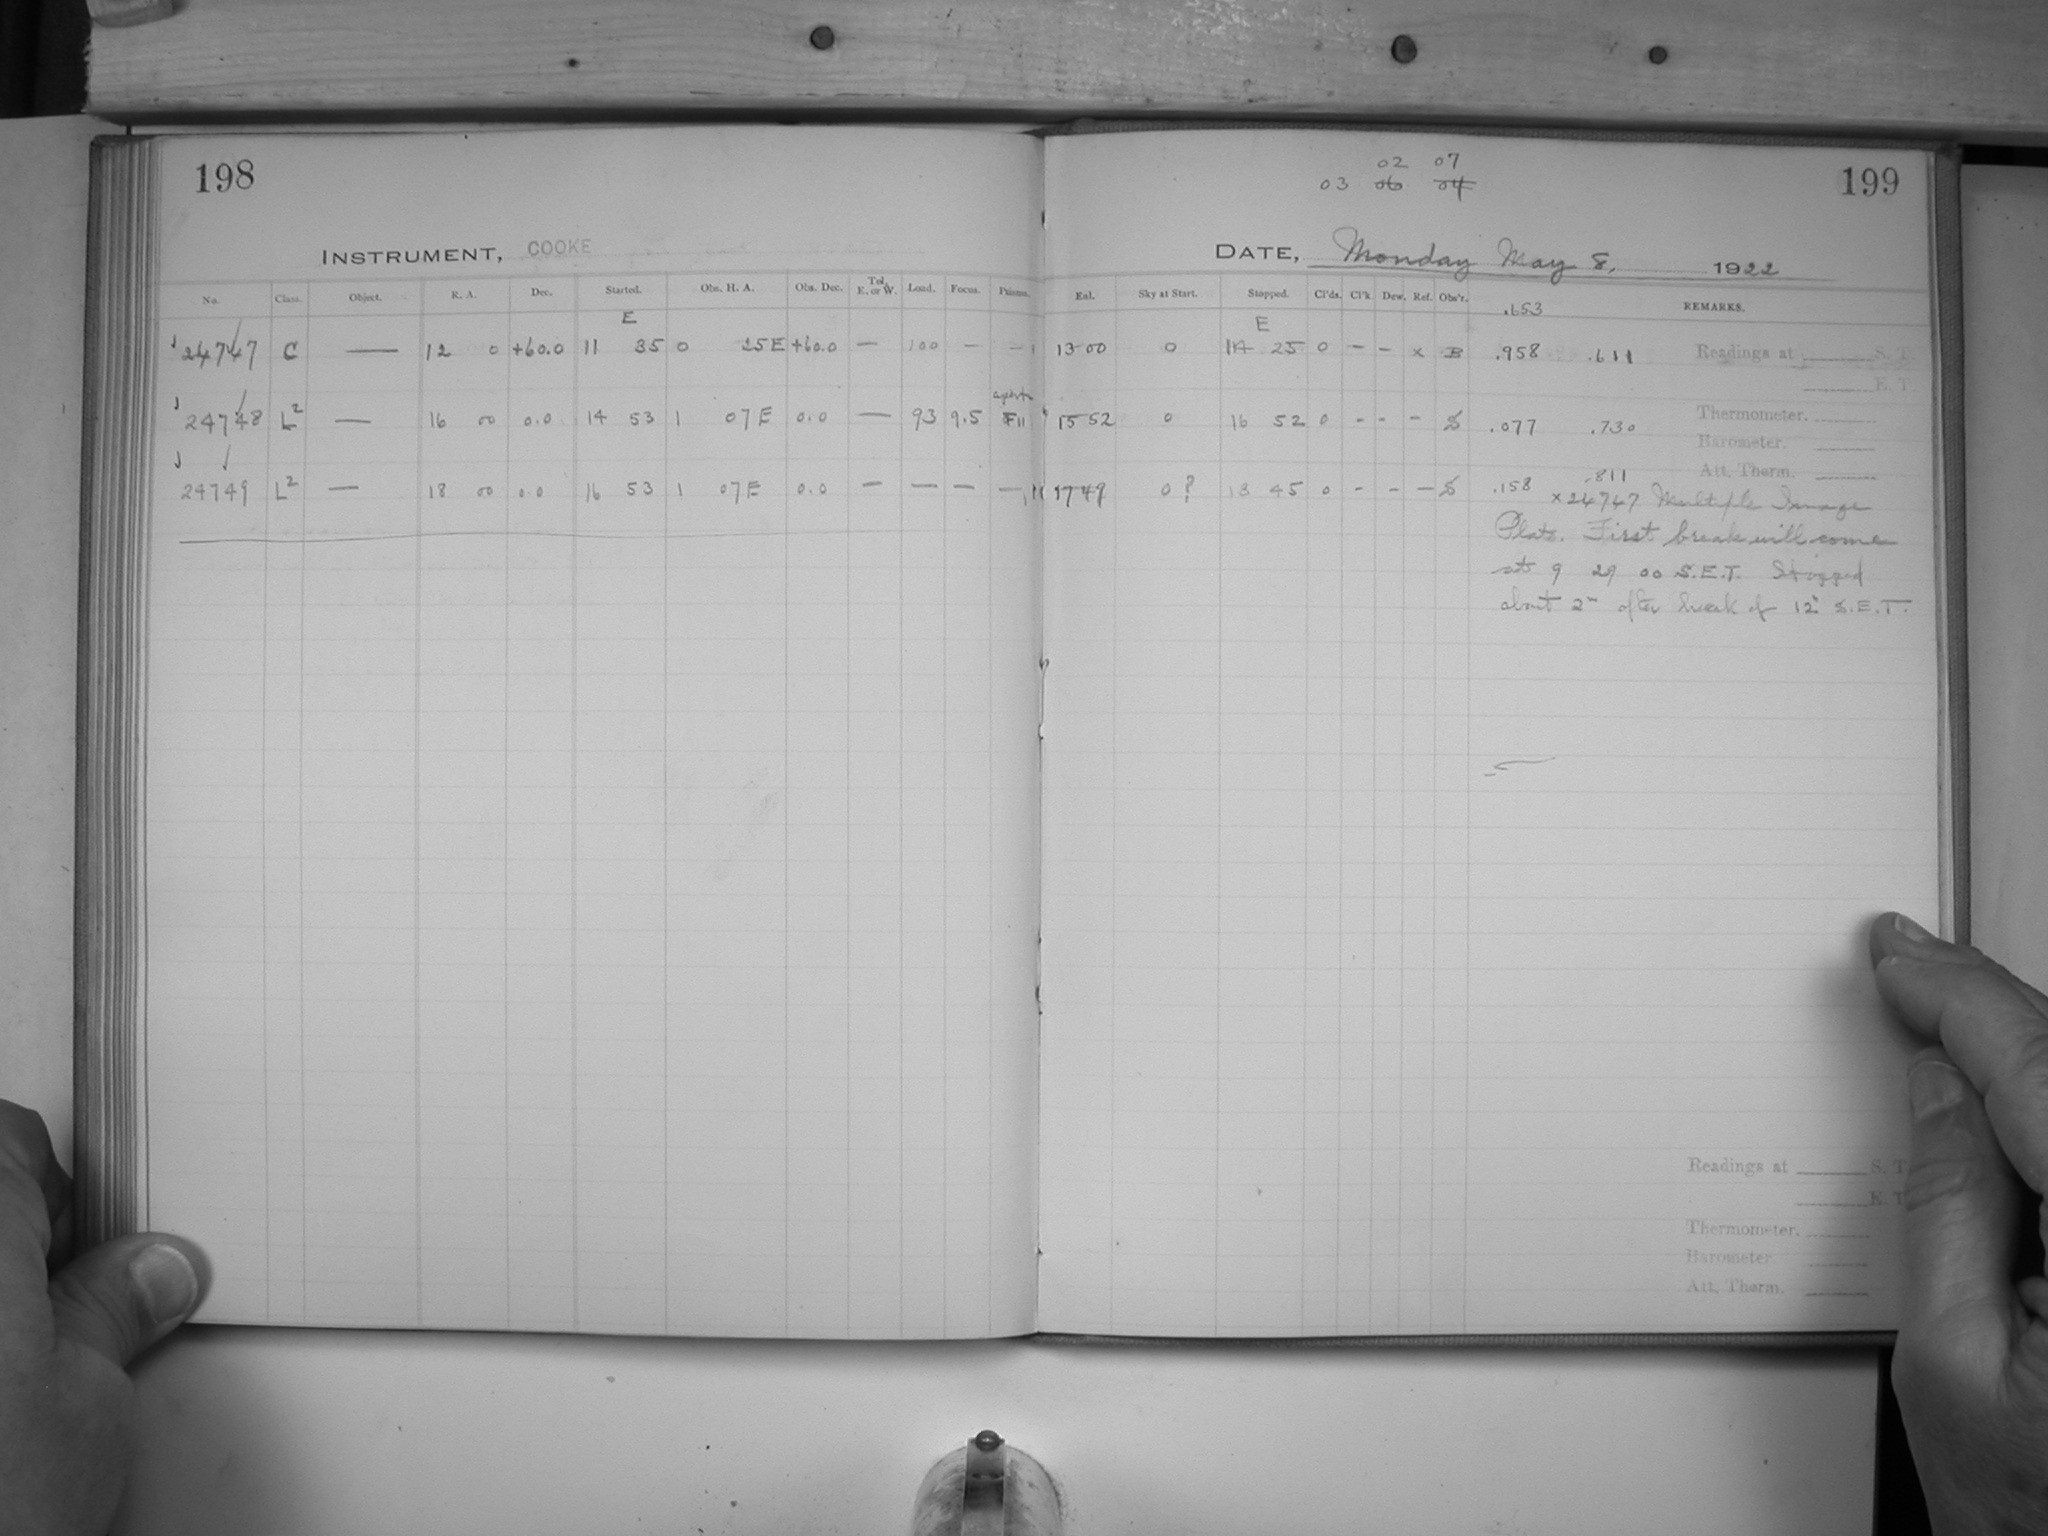 198
INSTRUMENT, COOKE
No. Class. Object. R. A. Dec. Started. Obs. H. A. Obs. Dec. Tel. E. or W. Load. Focus. Prisms.
E
24747 C — 12 0 +60.0 11 35 0 25E +60.0 — 100 — —
24748 L² — 16 00 0.0 14 53 1 07E 0.0 — 93 9.5 F11
24749 L² — 18 00 0.0 16 53 1 07E 0.0 — — — —
02 07
03 06 04
199
DATE, Monday May 8, 1922
Eal. Sky at Start. Stopped. Cl'ds. Cl'k. Dew. Ref. Obs'r. REMARKS.
.653
E
13 00 0 14 25 0 – – x B .958 .611 Readings at S. T.
E. T.
15 52 0 16 52 0 – – – S .077 .730 Thermometer.
Barometer.
.811 Att. Therm.
17 49 0? 18 45 0 – – – S .158
x 24747 Multiple Image
Plate. First break will come
at 9 29 00 S.E.T. Stopped
about 2ᵐ after break of 12ʰ S.E.T.
Readings at S. T.
E. T.
Thermometer.
Barometer
Att. Therm.